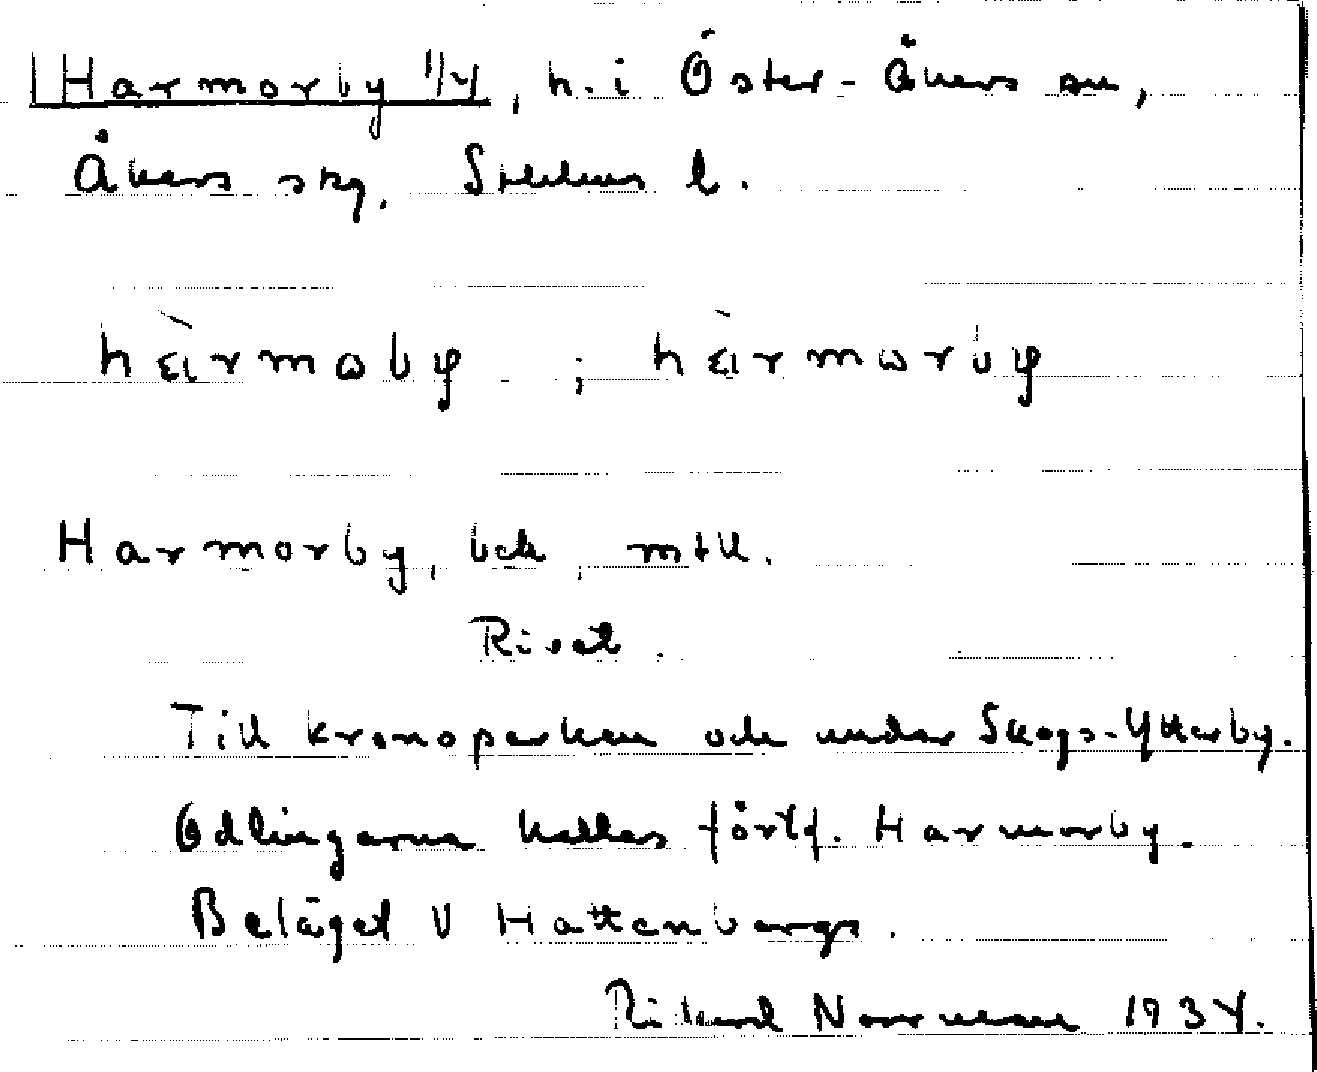 Harmorby 1/4, h. i Öster-Åkers sn,
Åkers skg. Stckhms l.
hàrmoby ; hàrmorby
Harmorby, bek, mtll.
Rivet.
Till kronoparken och under Skogs-Ytterby.
Odlingarna kallas fortf. Harmorby.
Beläget V Hattenbergs.
Rikard Norrman 1934.